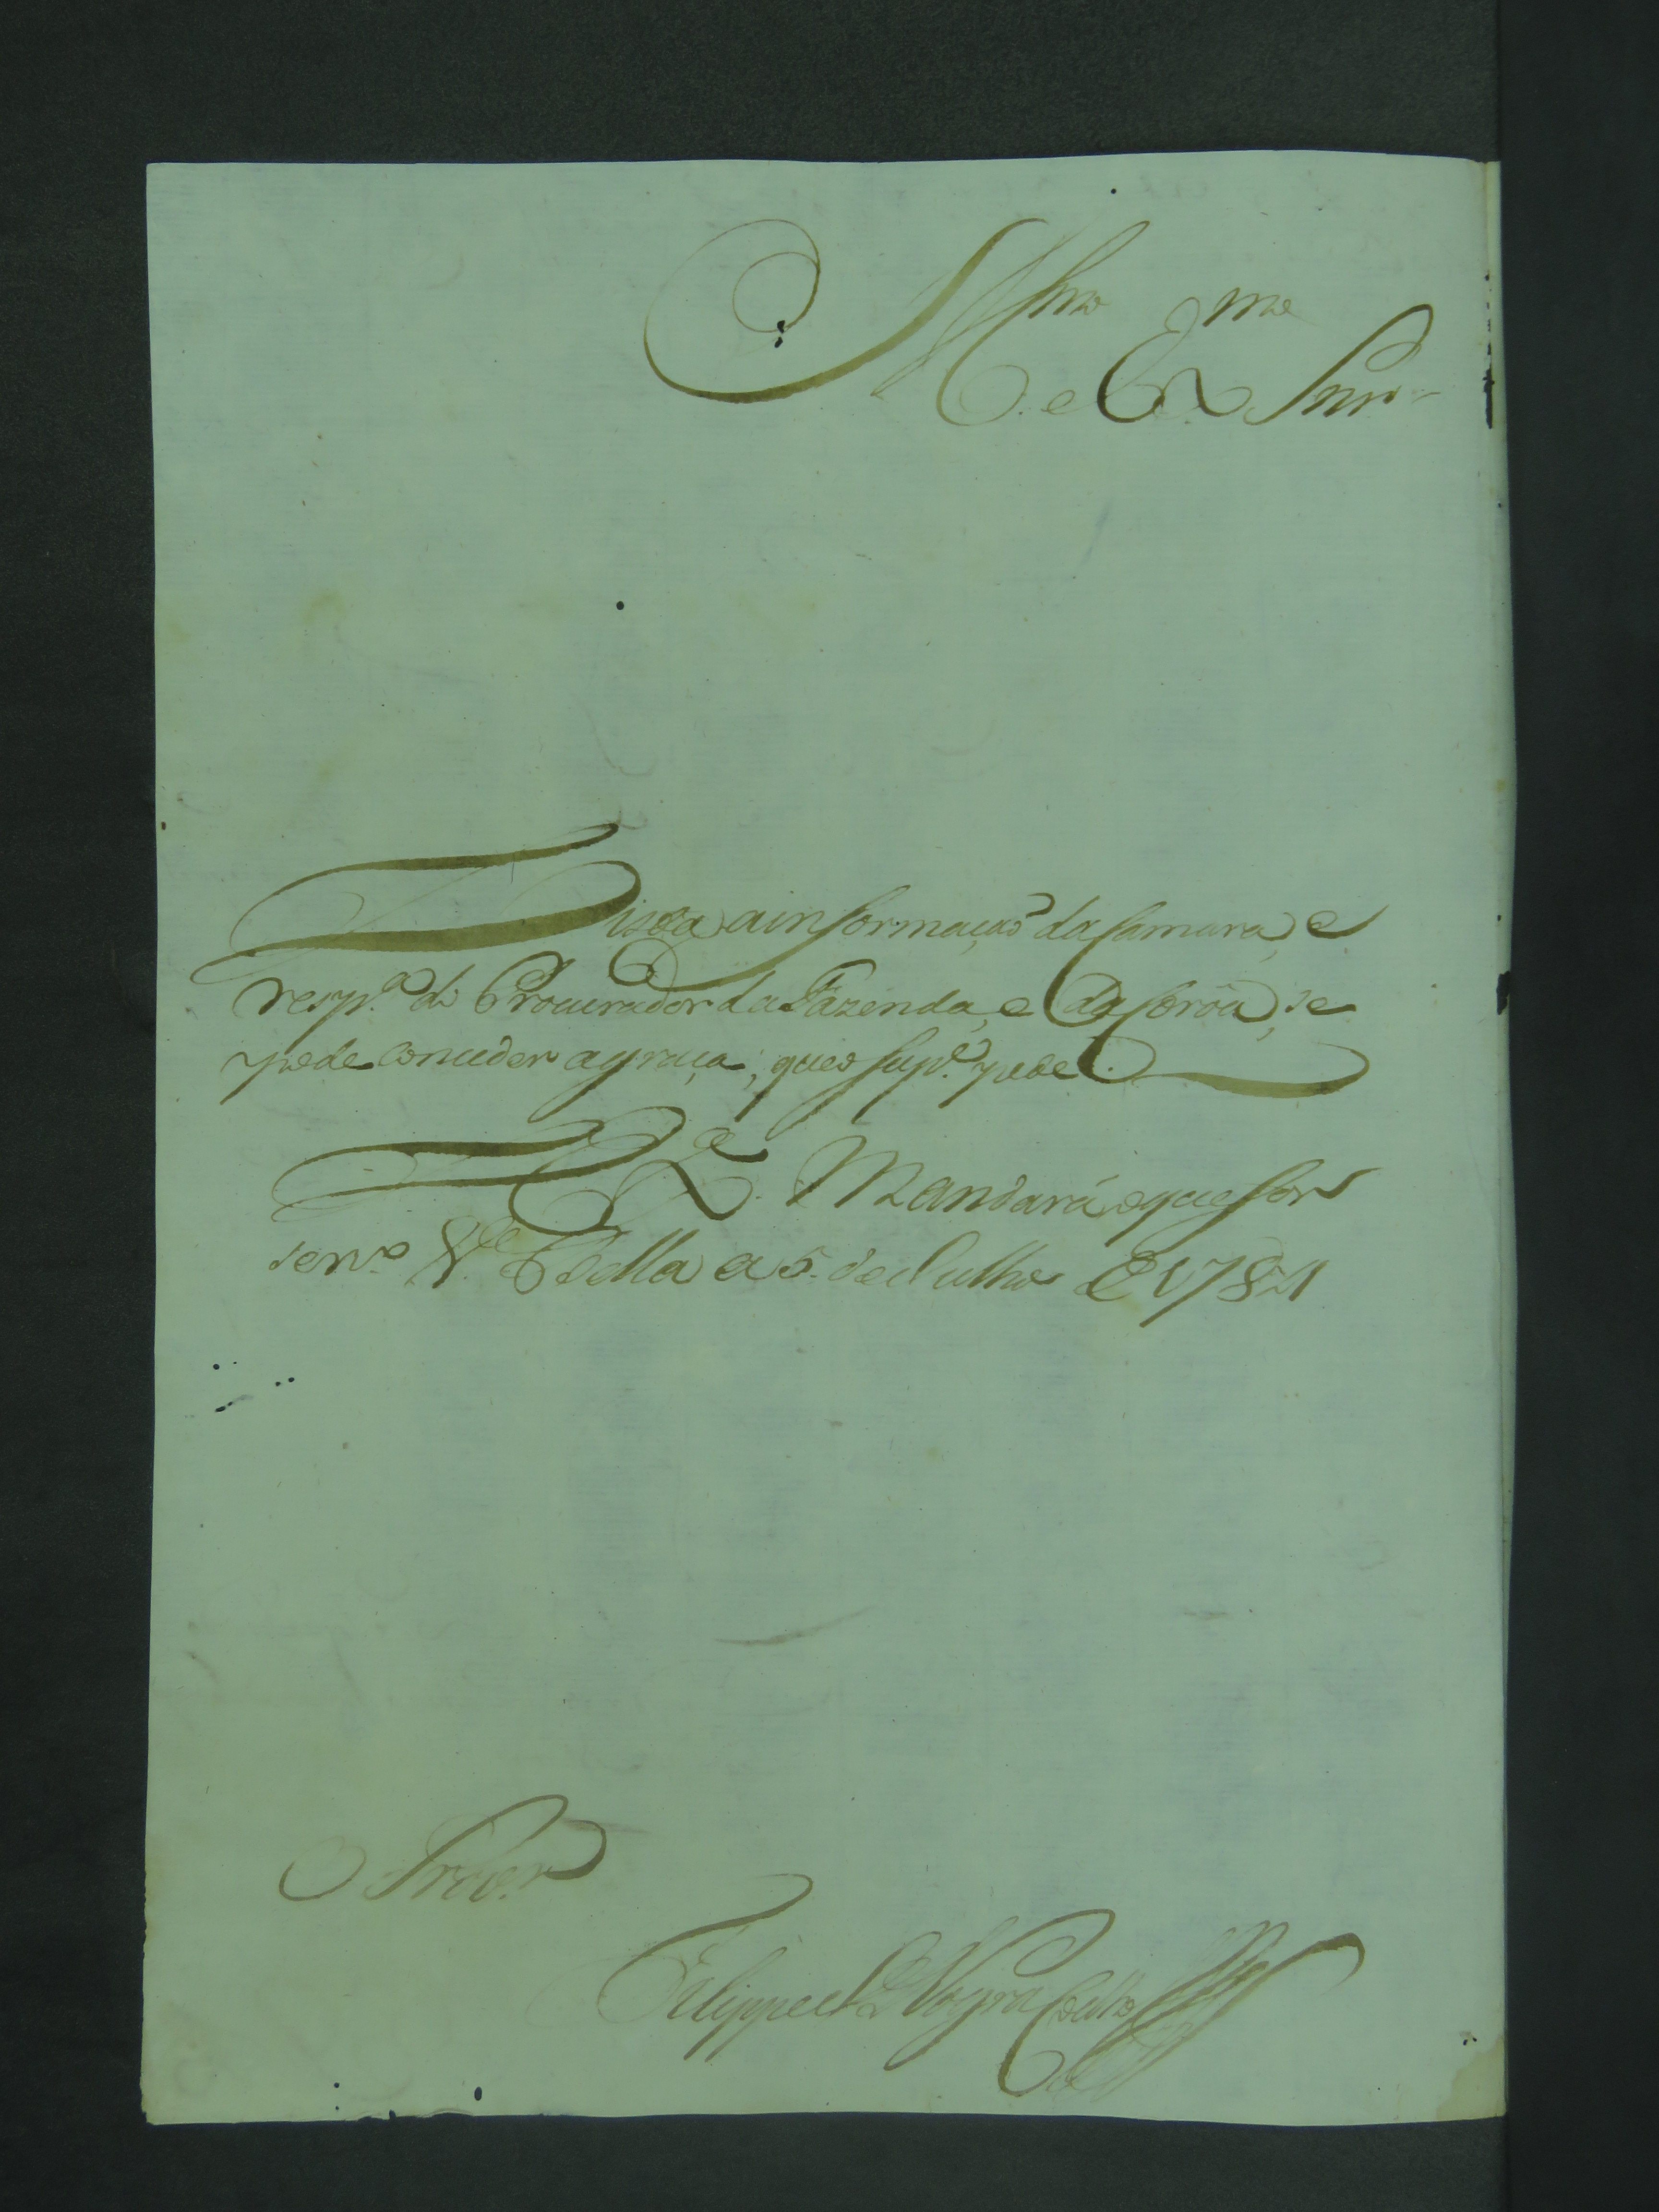 Illmo e Exmo Snr
Vista a informação da Camara, e
resp.ta do Procurador da Fazenda, e da Coroa, se
pode conceder a graça, que o Sup.e pede.
V. Ex.a Mandará o que for
serv.o V.a Bella a 5. de Julho de 1784
O Prov.or
Filippe Coelho